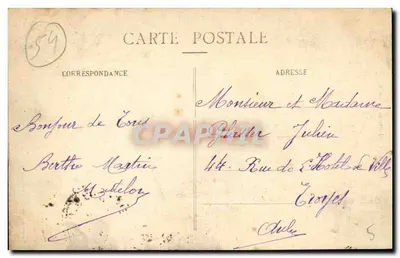 54
CARTE POSTALE
CORRESPONDANCE
ADRESSE
Monsieur et Madame
Julien
44 Rue de l'Hotel de Ville
Troyes
Aube
Bonjour de Tous
Berthe Martin
5